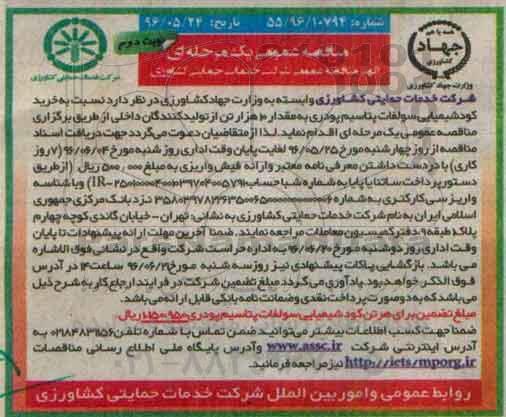 شماره: ۵۵/۹۶/۱۰۷۹۴ تاریخ: ۹۶/۰۵/۲۴
نوبت دوم
مناقصه عمومی یک مرحله ای
آگهی مناقصه عمومی شرکت خدمات حمایتی کشاورزی
جهاد
کشاورزی
وزارت جهاد کشاورزی
شرکت خدمات حمایتی کشاورزی
شرکت خدمات حمایتی کشاورزی وابسته به وزارت جهادکشاورزی در نظر دارد نسبت به خرید
کود شیمیایی سولفات پتاسیم پودری به مقدار ۱۰ هزار تن از تولیدکنندگان داخلی از طریق برگزاری
مناقصه عمومی یک مرحله ای اقدام نماید. لذا از متقاضیان دعوت می گردد جهت دریافت اسناد
مناقصه از روز چهارشنبه مورخ ۹۶/۰۵/۲۵ لغایت پایان وقت اداری روز شنبه مورخ ۹۶/۰۶/۰۴ (۷ روز
کاری) با در دست داشتن معرفی نامه معتبر و ارائه فیش واریزی به مبلغ ۵۰۰,۰۰۰ ریال (از طریق
دستور پرداخت ساتنا یا پایا به شماره شبا حساب و با شناسه
واریز سی کارکتری به شماره نزد بانک مرکزی جمهوری
اسلامی ایران به نام شرکت خدمات حمایتی کشاورزی به نشانی: تهران - خیابان گاندی کوچه چهارم
پلاک ۱ طبقه ۹ دفتر کمیسیون معاملات مراجعه نمایند. ضمنا آخرین مهلت ارائه پیشنهادات تا پایان
وقت اداری روز دوشنبه مورخ ۹۶/۰۶/۲۰ به اداره حراست شرکت واقع در نشانی فوق الاشاره
می باشد. بازگشایی پاکات پیشنهادی نیز روز سه شنبه مورخ ۹۶/۰۶/۲۱ ساعت ۱۴ در آدرس
فوق الذکر خواهد بود. یادآوری می گردد مبلغ تضمین شرکت در فرایند ارجاع کار به شرح ذیل
می باشد که به دو صورت پرداخت نقدی و ضمانت نامه بانکی قابل ارائه می باشد.
مبلغ تضمین برای هر تن کود شیمیایی سولفات پتاسیم پودری ریال.
ضمنا جهت کسب اطلاعات بیشتر می توانید ضمن تماس با شماره تلفن ۰۲۱۸۴۸۳۱۱۵۶ به
آدرس اینترنتی شرکت www.assc.ir و آدرس پایگاه ملی اطلاع رسانی مناقصات
http://iets/mporg.ir نیز مراجعه فرمائید.
روابط عمومی و امور بین الملل شرکت خدمات حمایتی کشاورزی